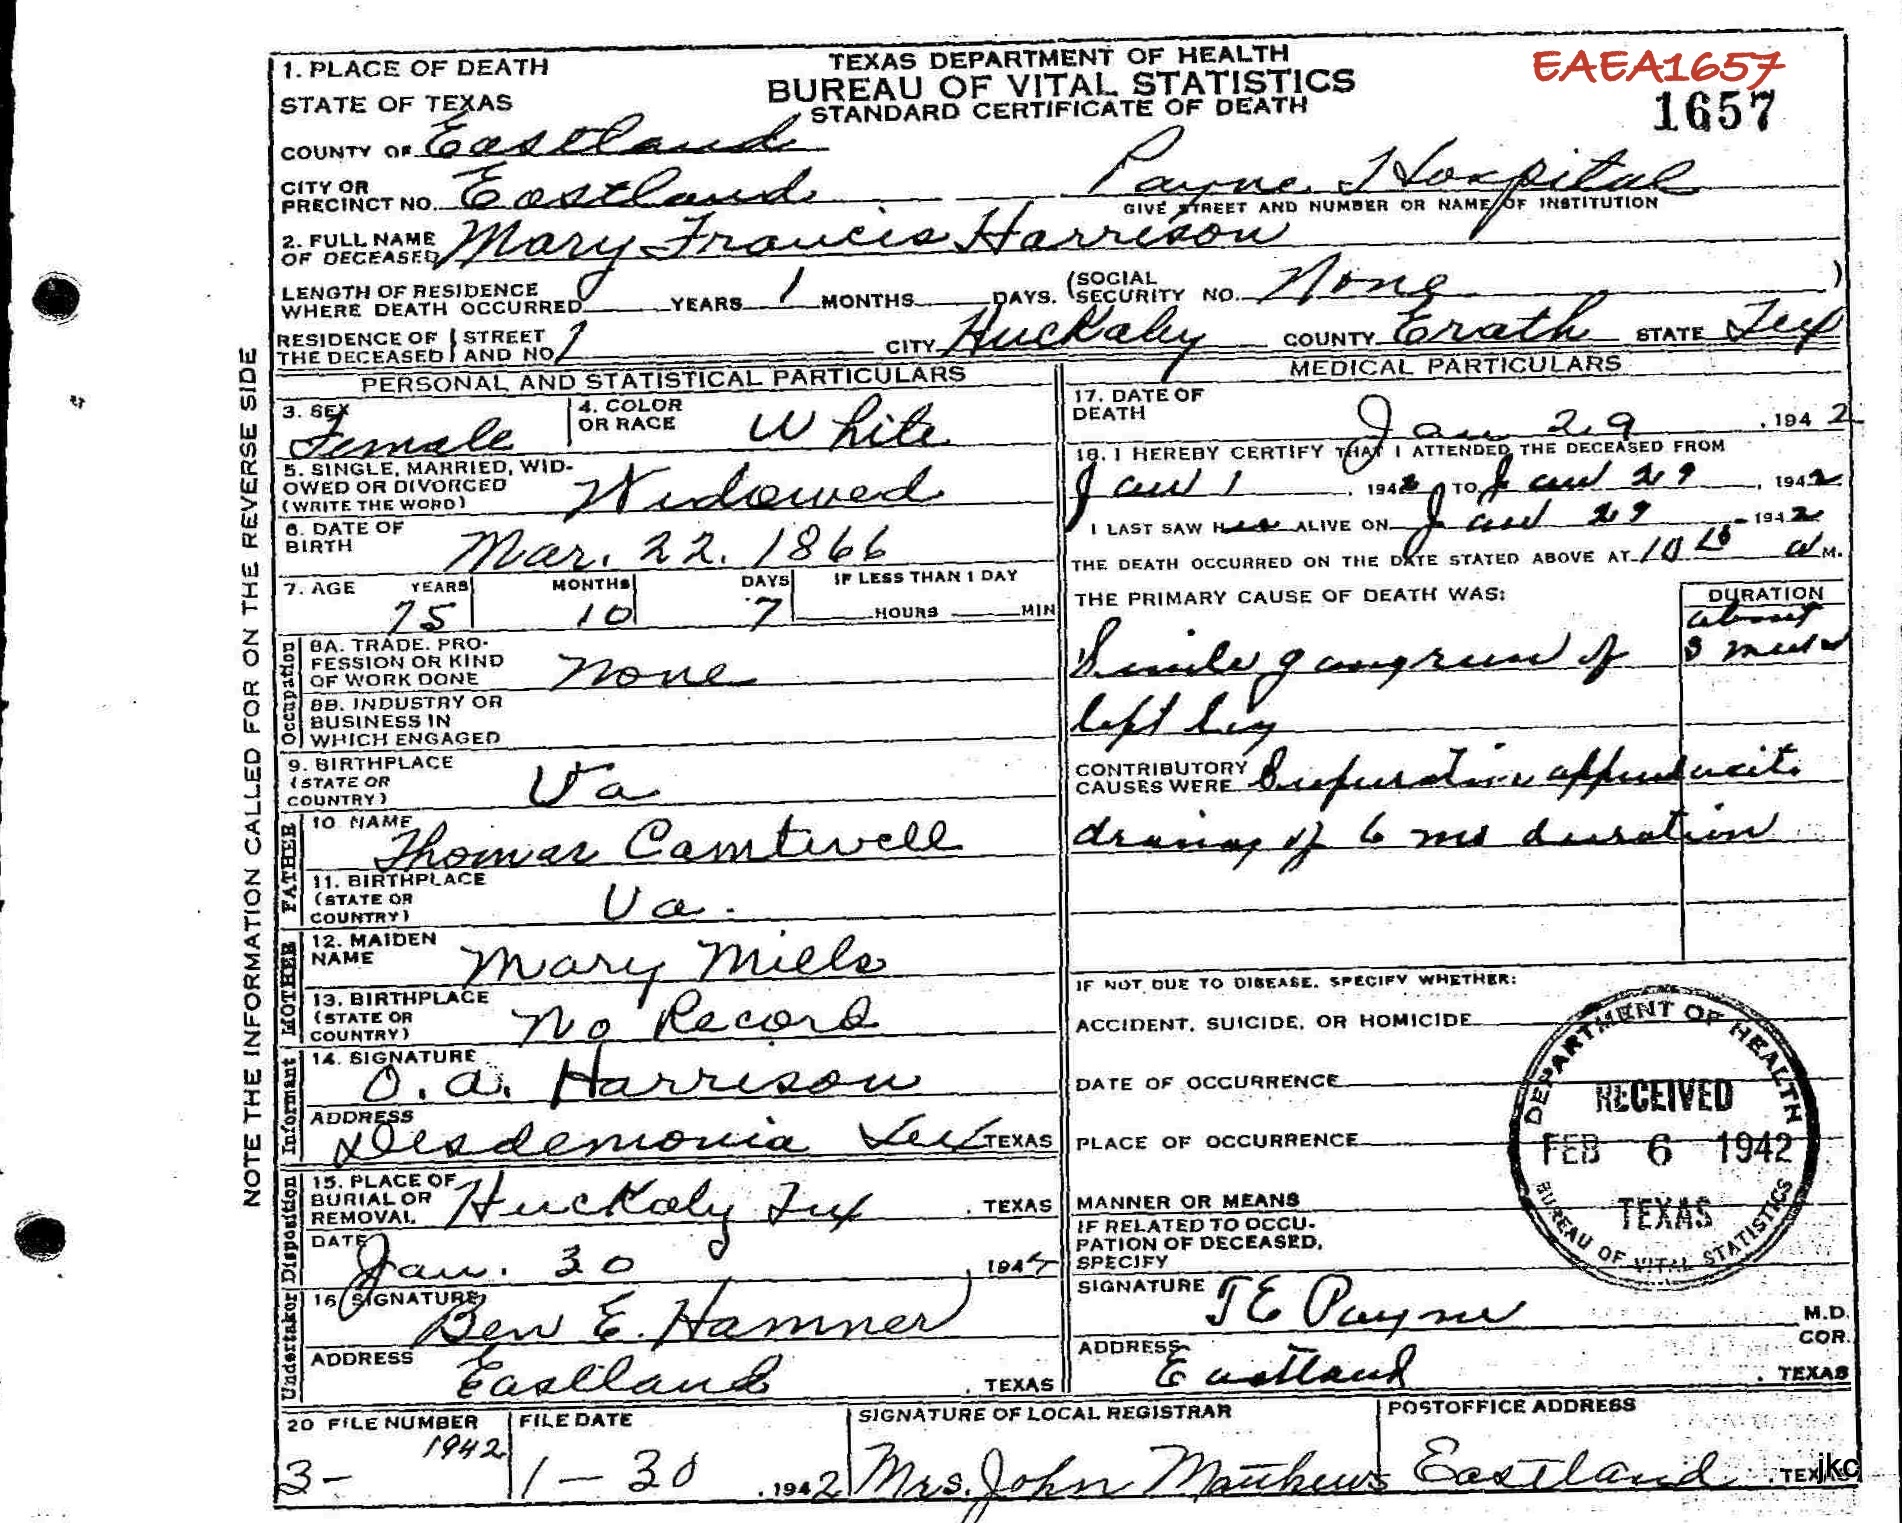 EAEA1657
1657
TEXAS DEPARTMENT OF HEALTH
BUREAU OF VITAL STATISTICS
STANDARD CERTIFICATE OF DEATH
1. PLACE OF DEATH
STATE OF TEXAS
COUNTY OF Eastland
CITY OR PRECINCT NO. Eastland Payne Hospital
GIVE STREET AND NUMBER OR NAME OF INSTITUTION
2. FULL NAME OF DECEASED Mary Francis Harrison
LENGTH OF RESIDENCE WHERE DEATH OCCURRED YEARS 1 MONTHS DAYS. (SOCIAL SECURITY NO. None )
RESIDENCE OF THE DECEASED STREET AND NO 1 CITY Huckaby COUNTY Erath STATE Tex
PERSONAL AND STATISTICAL PARTICULARS
3. SEX Female
4. COLOR OR RACE White
5. SINGLE, MARRIED, WID-
OWED OR DIVORCED
(WRITE THE WORD) Widowed
6. DATE OF BIRTH Mar. 22. 1866
7. AGE YEARS MONTHS DAYS IF LESS THAN 1 DAY
75 10 7 HOURS MIN
Occupation
8A. TRADE, PRO-
FESSION OR KIND
OF WORK DONE None
8B. INDUSTRY OR
BUSINESS IN
WHICH ENGAGED
9. BIRTHPLACE
(STATE OR
COUNTRY) Va
FATHER
10. NAME Thomas Camtwell
11. BIRTHPLACE
(STATE OR
COUNTRY) Va.
MOTHER
12. MAIDEN NAME Mary Mills
13. BIRTHPLACE
(STATE OR
COUNTRY) No Record
Informant
14. SIGNATURE O. A. Harrison
ADDRESS Desdemonia Tex TEXAS
Disposition
15. PLACE OF
BURIAL OR
REMOVAL Huckaby Tex , TEXAS
DATE Jan. 30 , 194
Undertaker
16 SIGNATURE Ben E. Hamner
ADDRESS Eastland , TEXAS
MEDICAL PARTICULARS
17. DATE OF DEATH Jan 29 , 1942
18. I HEREBY CERTIFY THAT I ATTENDED THE DECEASED FROM
Jan 1 , 1942 TO Jan 29 , 1942
I LAST SAW Her ALIVE ON Jan 29 1942
THE DEATH OCCURRED ON THE DATE STATED ABOVE AT 10 a M.
THE PRIMARY CAUSE OF DEATH WAS: DURATION
about
Senile gangrene of 3 weeks
left leg
CONTRIBUTORY
CAUSES WERE Suppurative appendicitis
of 6 mo duration
IF NOT DUE TO DISEASE, SPECIFY WHETHER:
ACCIDENT, SUICIDE, OR HOMICIDE
DATE OF OCCURRENCE
PLACE OF OCCURRENCE
MANNER OR MEANS
IF RELATED TO OCCU-
PATION OF DECEASED,
SPECIFY
SIGNATURE T E Payne M.D.
COR.
ADDRESS Eastland , TEXAS
DEPARTMENT OF HEALTH
RECEIVED
FEB 6 1942
TEXAS
BUREAU OF VITAL STATISTICS
20 FILE NUMBER FILE DATE SIGNATURE OF LOCAL REGISTRAR POSTOFFICE ADDRESS
1942
3- 1-30 , 1942 Mrs. John Matthews Eastland , TEX
jkc
NOTE THE INFORMATION CALLED FOR ON THE REVERSE SIDE